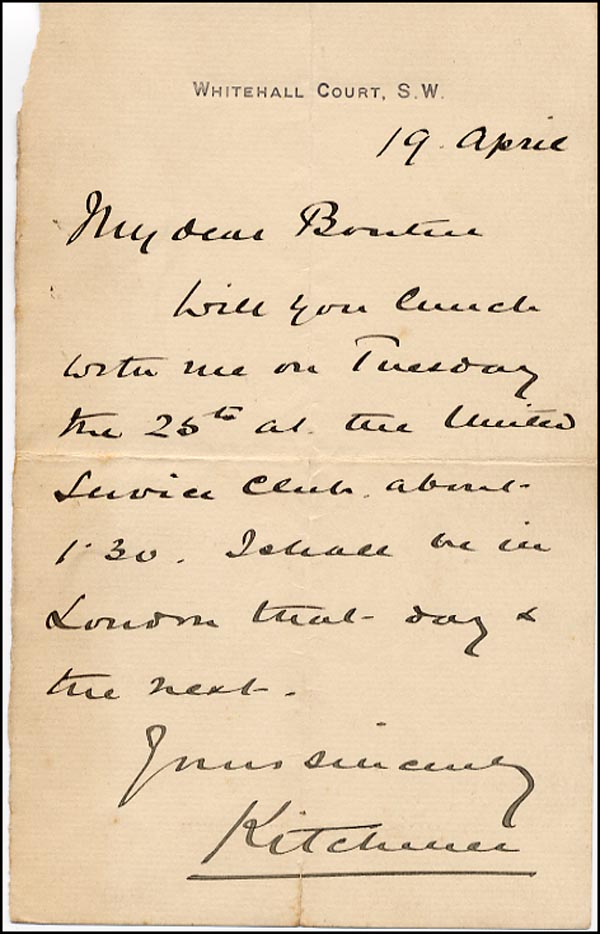 WHITEHALL COURT, S.W.
19. April
My dear
Will you lunch
with me on Tuesday
the 25th at the United
Service Club. about
1.30. I shall be in
London that day &
the next.
Yours sincerely
Kitchener